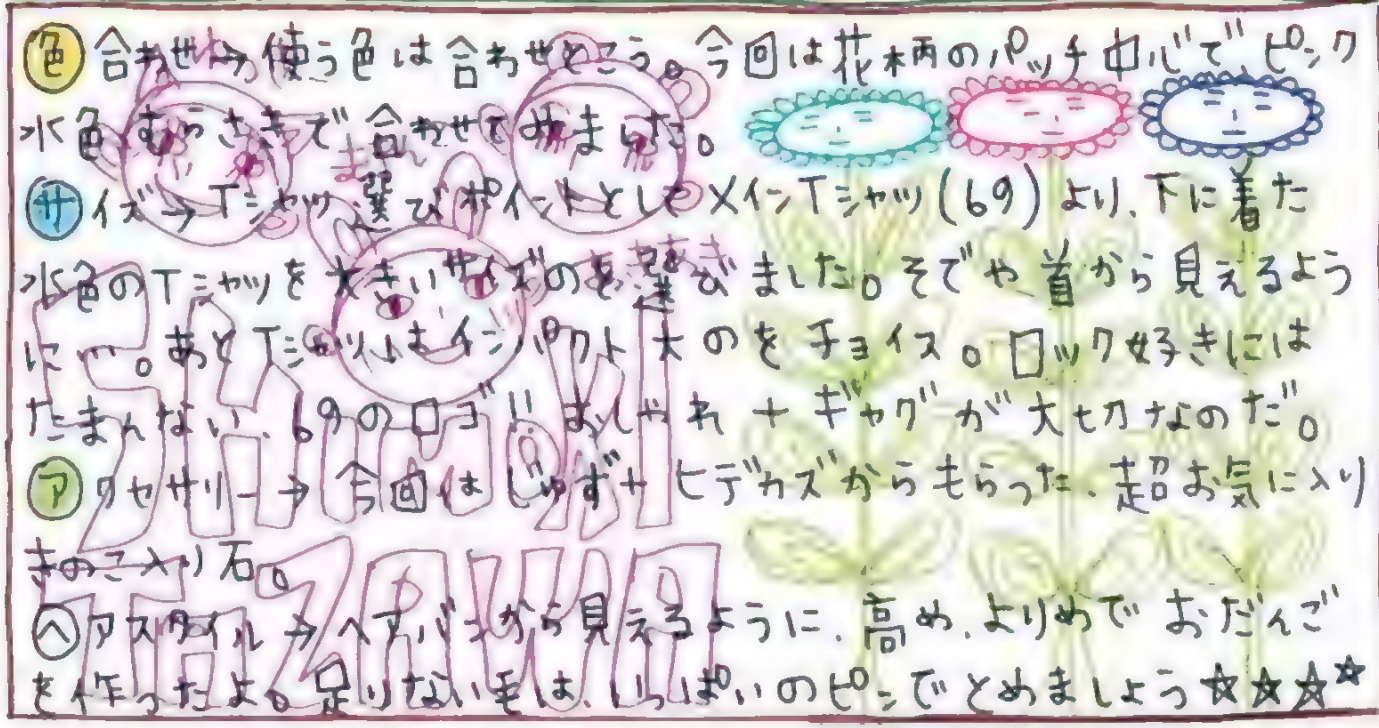 色合わせ→使う色は合わせとこう。今回は花柄のパッチ中心で、ピンク
水色むらさきで合わせてみました。
サイズ→Tシャツ選びポイントとしてメインTシャツ(69)より、下に着た
水色のTシャツを大きいサイズのを選びました。そでや首から見えるよう
に…。あとTシャツはインパクト大のをチョイス。ロック好きには
たまんない、69のロゴ!!おしゃれ+ギャグが大切なのだ。
アクセサリー→今回はじゅず+ヒデカズからもらった、超お気に入り
きのこ入り石。
ヘアスタイル→ヘアバンから見えるように、高め、よりめでおだんご
を作ったよ。足りない毛は、いっぱいのピンでとめましょう☆☆☆☆